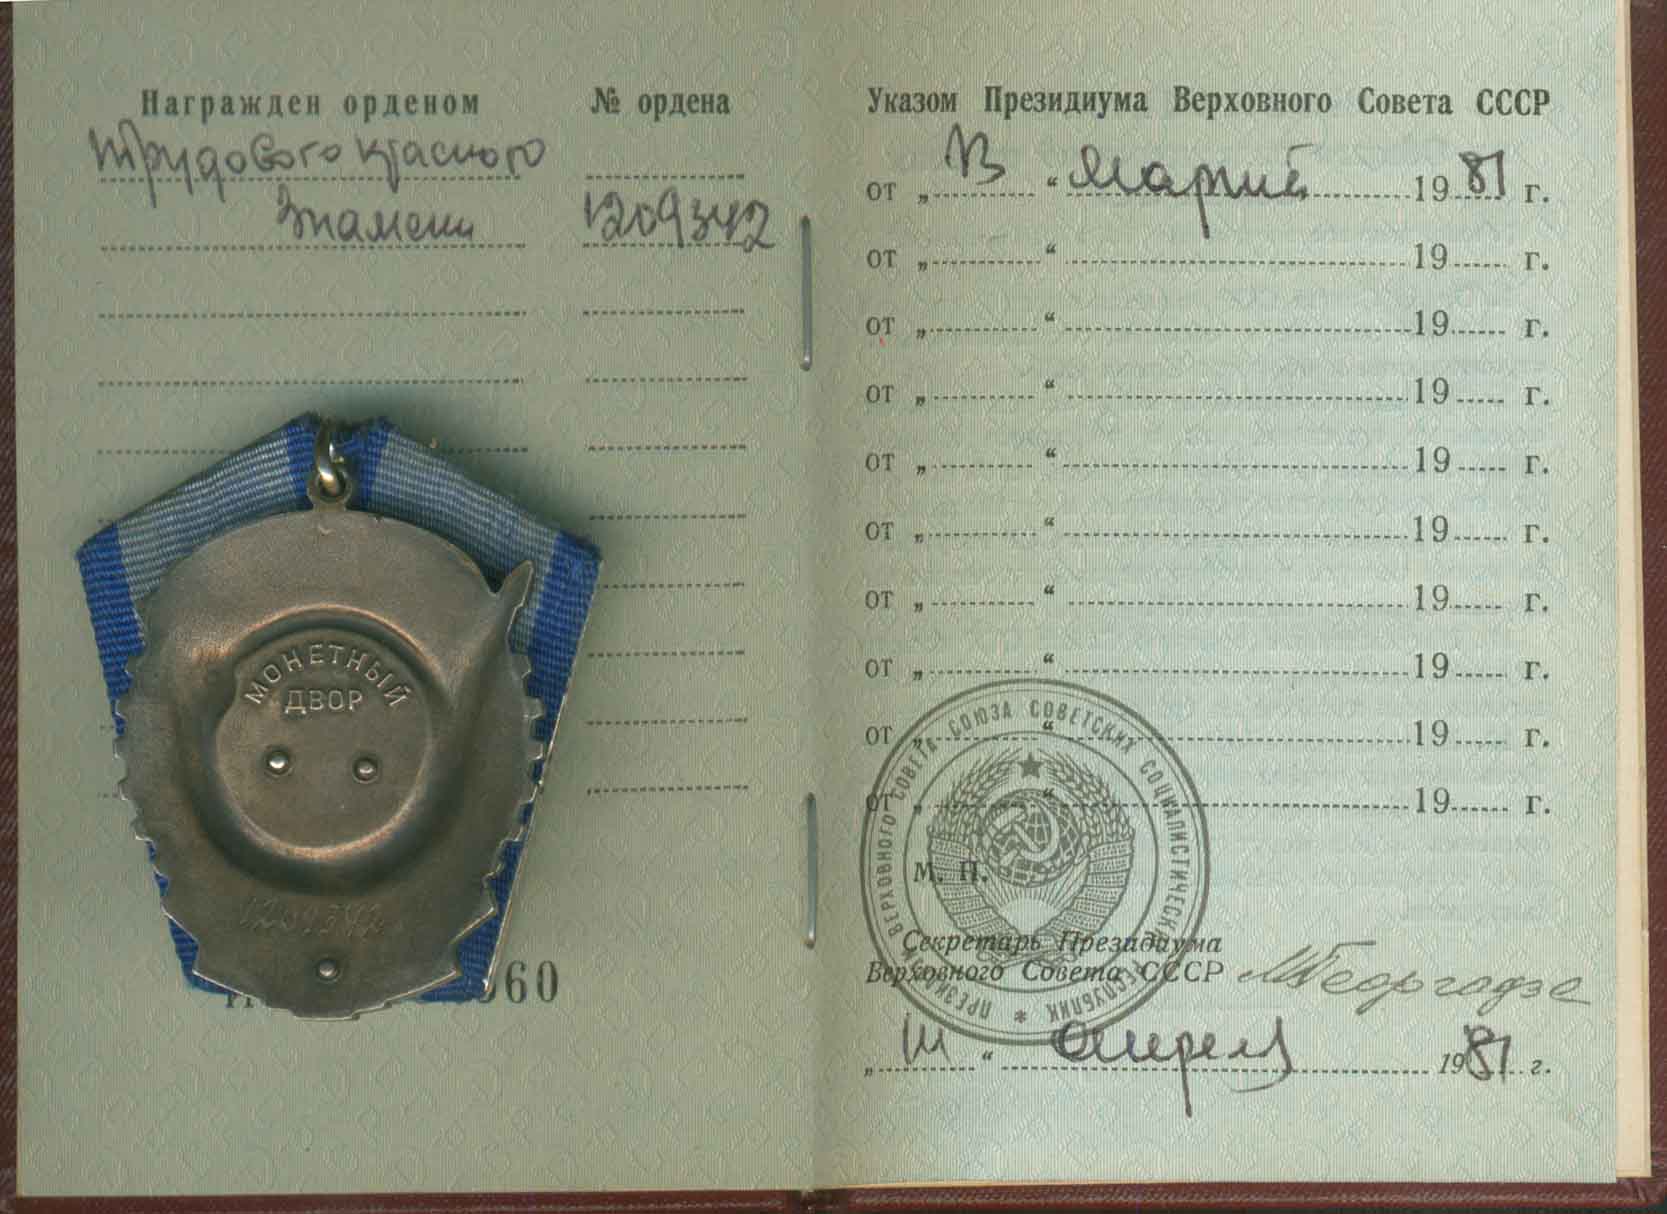 Награжден орденом
Трудового Красного
Знамени
№ ордена
1209342
МОНЕТНЫЙ
ДВОР
1209342
60
Указом Президиума Верховного Совета СССР
от „ “ 1981 г.
от „ “ 19 г.
от „ “ 19 г.
от „ “ 19 г.
от „ “ 19 г.
от „ “ 19 г.
от „ “ 19 г.
от „ “ 19 г.
от „ “ 19 г.
от „ “ 19 г.
ПРЕЗИДИУМ ВЕРХОВНОГО СОВЕТА СОЮЗА СОВЕТСКИХ СОЦИАЛИСТИЧЕСКИХ РЕСПУБЛИК *
М. П.
Секретарь Президиума
Верховного Совета СССР МГеоргадзе
„ “ апреля 1981 г.